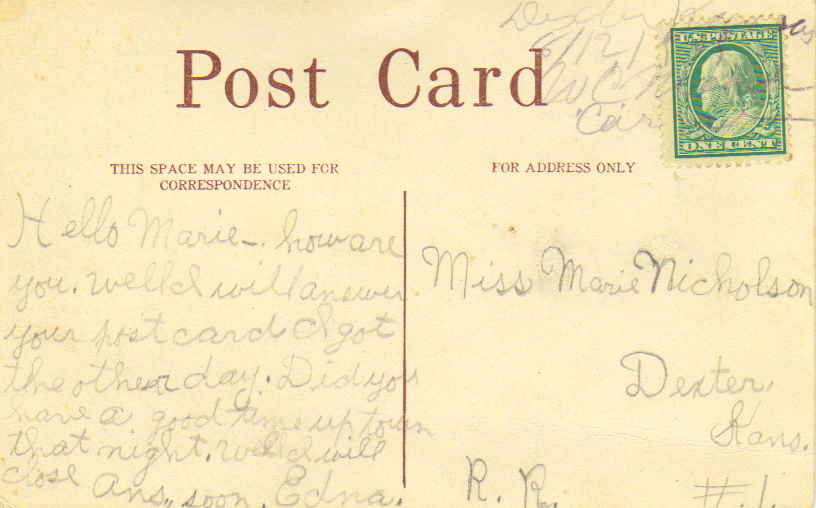 Dexter Kansas
8/12/1
Post Card
U.S. POSTAGE
ONE CENT
THIS SPACE MAY BE USED FOR
CORRESPONDENCE
FOR ADDRESS ONLY
Hello Marie - how are
you. Well I will answer
your post card I got
the other day. Did you
have a good time up town
that night. Well I will
close Ans. soon. Edna.
Miss Marie Nicholson
Dexter
Kans.
R. R. #.1.